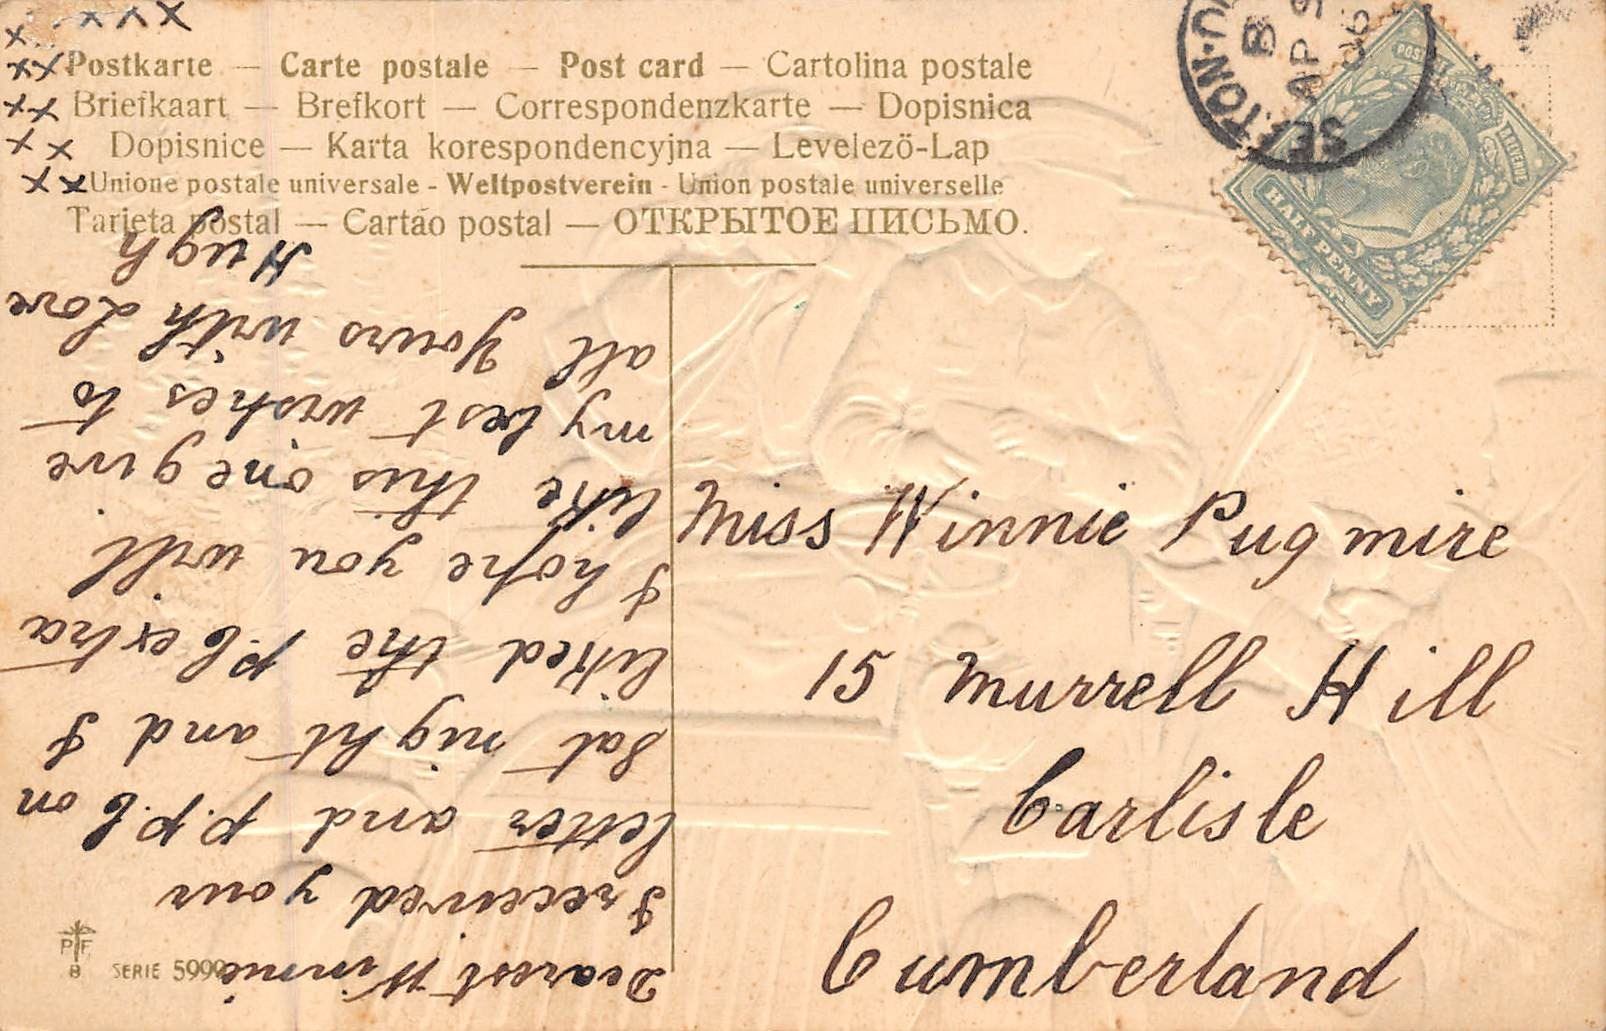 x x x x
x
x x Postkarte — Carte postale — Post card — Cartolina postale
x x Briefkaart — Brefkort — Correspondenzkarte — Dopisnica
x x Dopisnice — Karta korespondencyjna — Levelezö-Lap
x x Unione postale universale - Weltpostverein - Union postale universelle
Tarjeta postal — Cartão postal — ОТКРЫТОЕ ПИСЬМО.
SEATON
B
AP 9
06
POSTAGE
REVENUE
HALF PENNY
Miss Winnie Pugmire
15 Murrell Hill
Carlisle
Cumberland
Dearest Winnie
I received your
letter and p.p.c on
Sat night and I
liked the p.c extra
I hope you will
like this one give
my best wishes to
all yours with Love
Hugh
PF
8
SERIE 5999